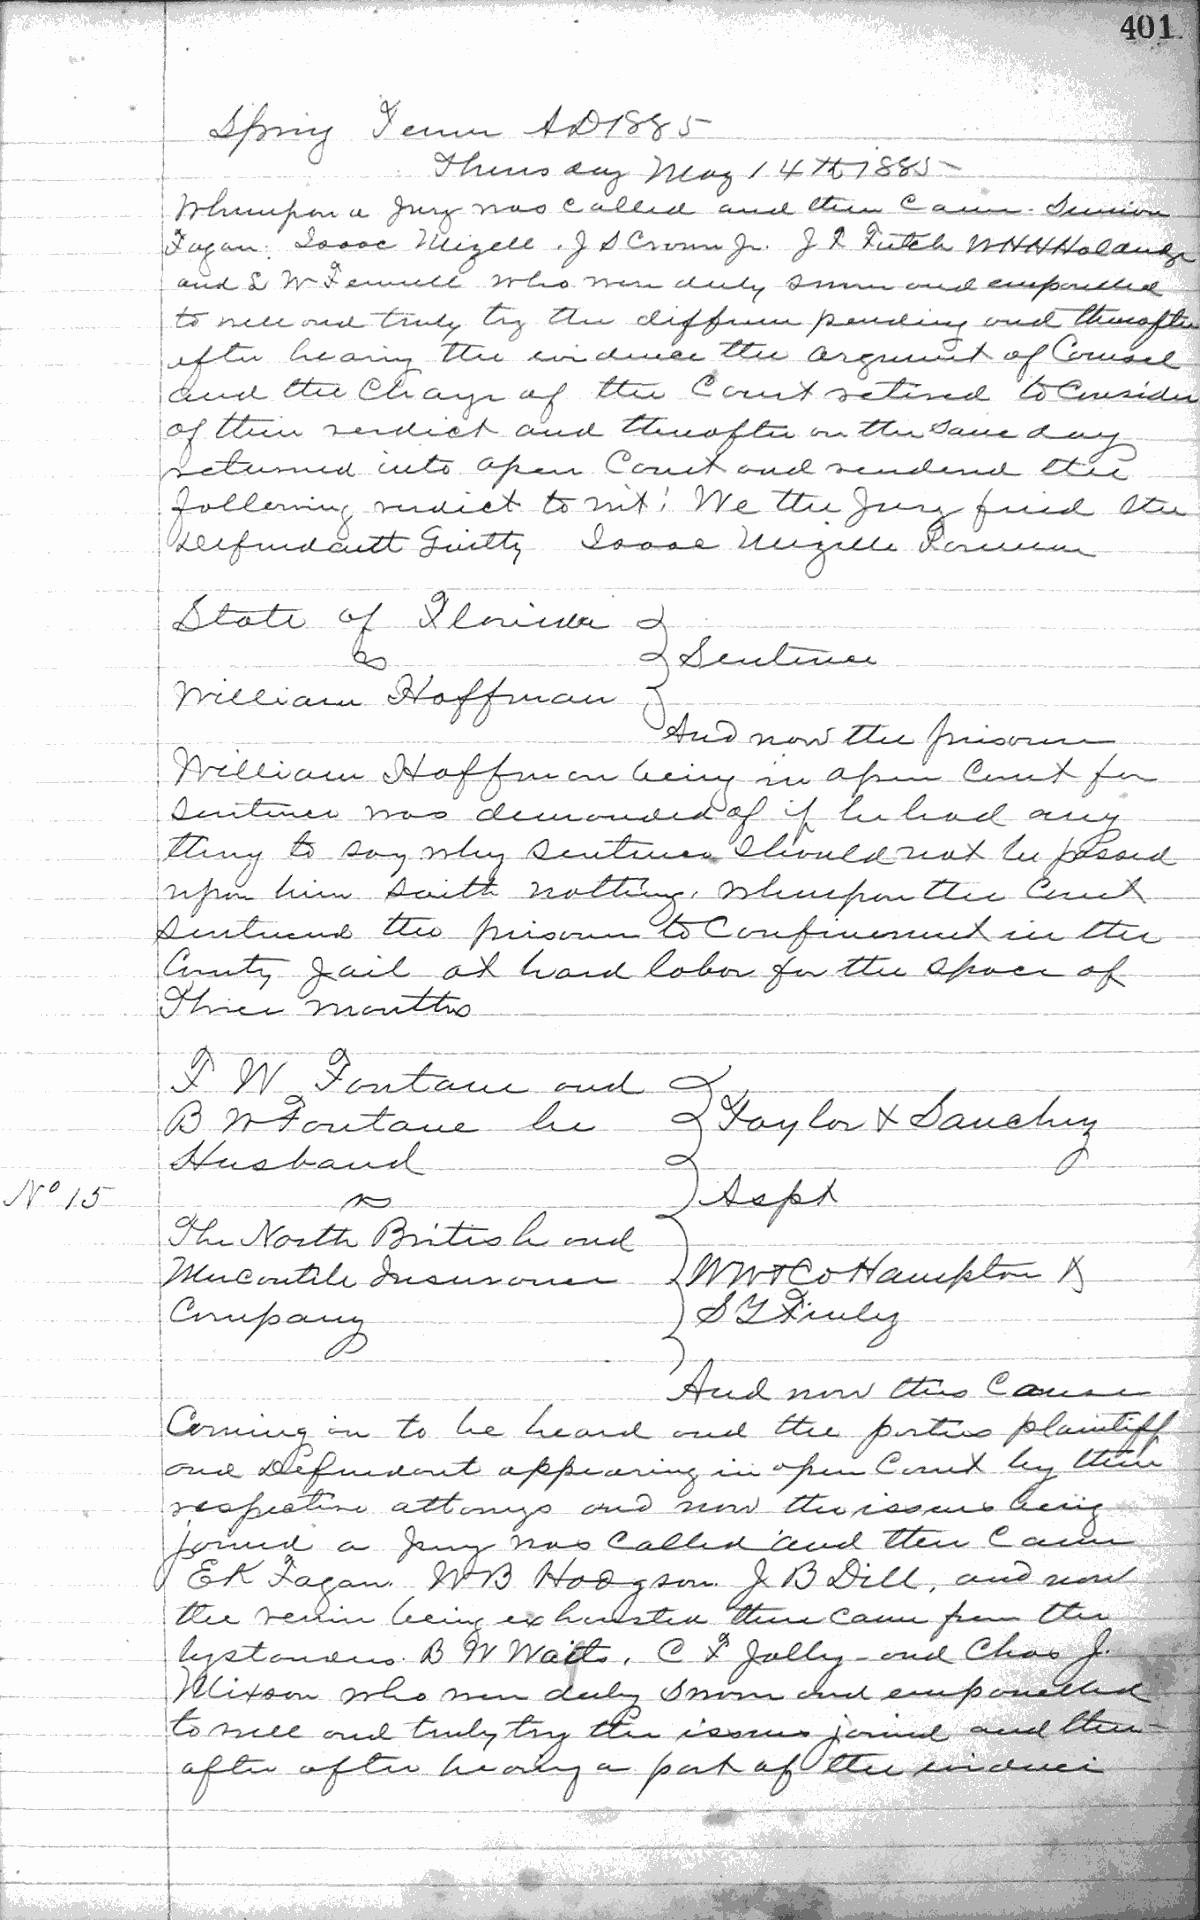 401.
Spring Term AD 1885
Thursday May 14th 1885
Whereupon a Jury was called and then Came. Simeon
Fagan. Isaac Mizell. J S Crown Jr. J F Futch W H H Holand
and L W Fennell who were duly sworn and empanelled
to well and truly try the diffrence pending and thereafter
after hearing the evidence the argument of Counsel
and the Charge of the Court retired to Consider
of their verdict and thereafter on the same day
returned into open Court and rendered the
following verdict to wit: We the Jury find the
Defendantt Guilty Isaac Mizelle Foreman
State of Florida
vs Sentence
William Hoffman
And now the prisoner
William Hoffman being in open Court for
Sentence was demanded of if he had any
thing to say why Sentence Should not be passed
upon him saith nothing, whereupon the Court
Sentenced the prisoner to Confinement in the
County Jail at hard labor for the Space of
Three months
F W Fontane and
B W Fontane her Taylor & Sanchez
Husband
No 15 vs Aspt
The North British and
Mercantile Insurance W W & C O Hampton &
Company S Y Finley
And now this Cause
Coming on to be heard and the parties plaintiff
and Defendant appearing in open Court by their
respective attornys and now the issues being
joined a Jury was Called and then Came
E K Fagan. W B Hodgson. J B Dill, and now
the venire being exhausted there came from the
bystanders. B W Waits, C F Jolly - and Chas J.
Mixson who were duly Sworn and empanelled
to well and truly try the issues joined and there-
after after hearing a part of the evidence